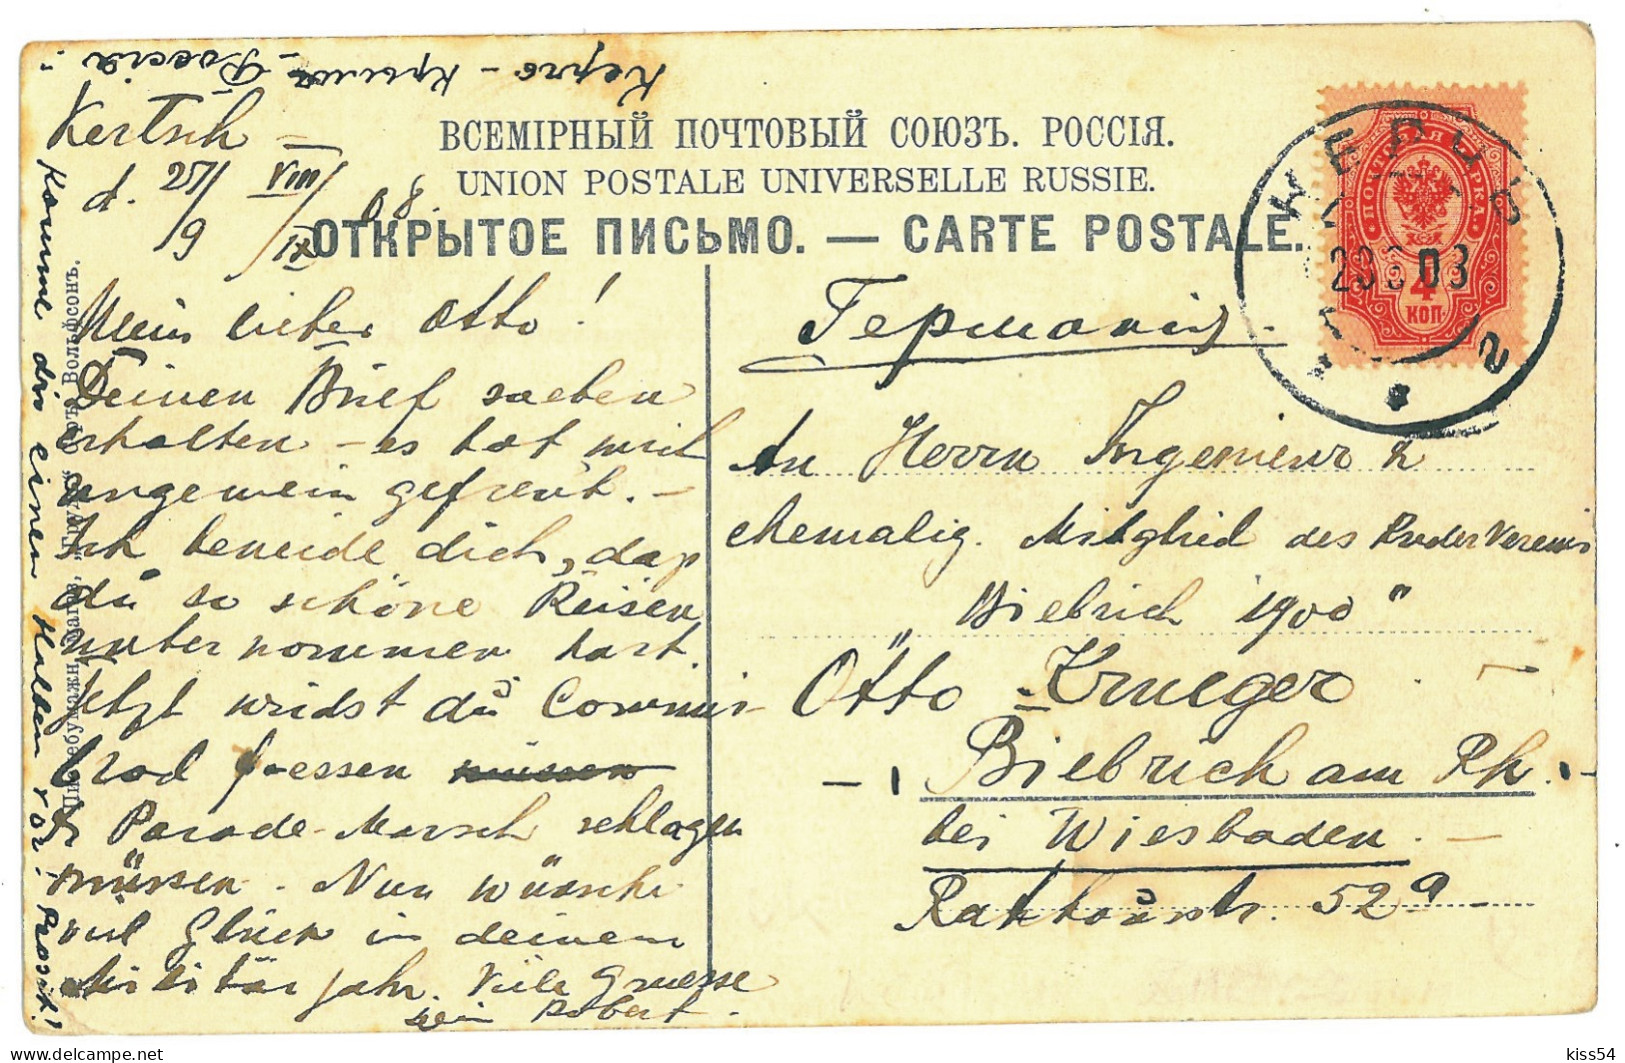 Керчь - Крым - Россія
Kertsch —
d. 27/9 VIII/IX 08.
ВСЕМІРНЫЙ ПОЧТОВЫЙ СОЮЗЪ. РОССІЯ.
UNION POSTALE UNIVERSELLE RUSSIE.
ОТКРЫТОЕ ПИСЬМО. — CARTE POSTALE.
Mein lieber Otto!
Deinen Brief soeben
erhalten – es hat mich
ungemein gefreut. –
Ich beneide dich, dass
du so schöne Reisen
unternommen hast.
Jetzt wirdst du Commis-
brod fressen müssen
Parade-Marsch schlagen
müssen. Nun wünsche
viel Glück in deinem
Militärjahr. Viele Gruesse
dein Robert.
Komme dir einen Halben vor. Prosit!
Вольфсонъ.
Германія.
An Herrn Ingenieur &
ehemalig. Mitglied des Ruder Vereins
„Biebrich 1900"
Otto Krueger
Biebrich am Rh.
bei Wiesbaden.
Rathausstr. 52a
ПОЧТОВАЯ МАРКА
4
КОП.
КЕРЧЬ
2
kiss54